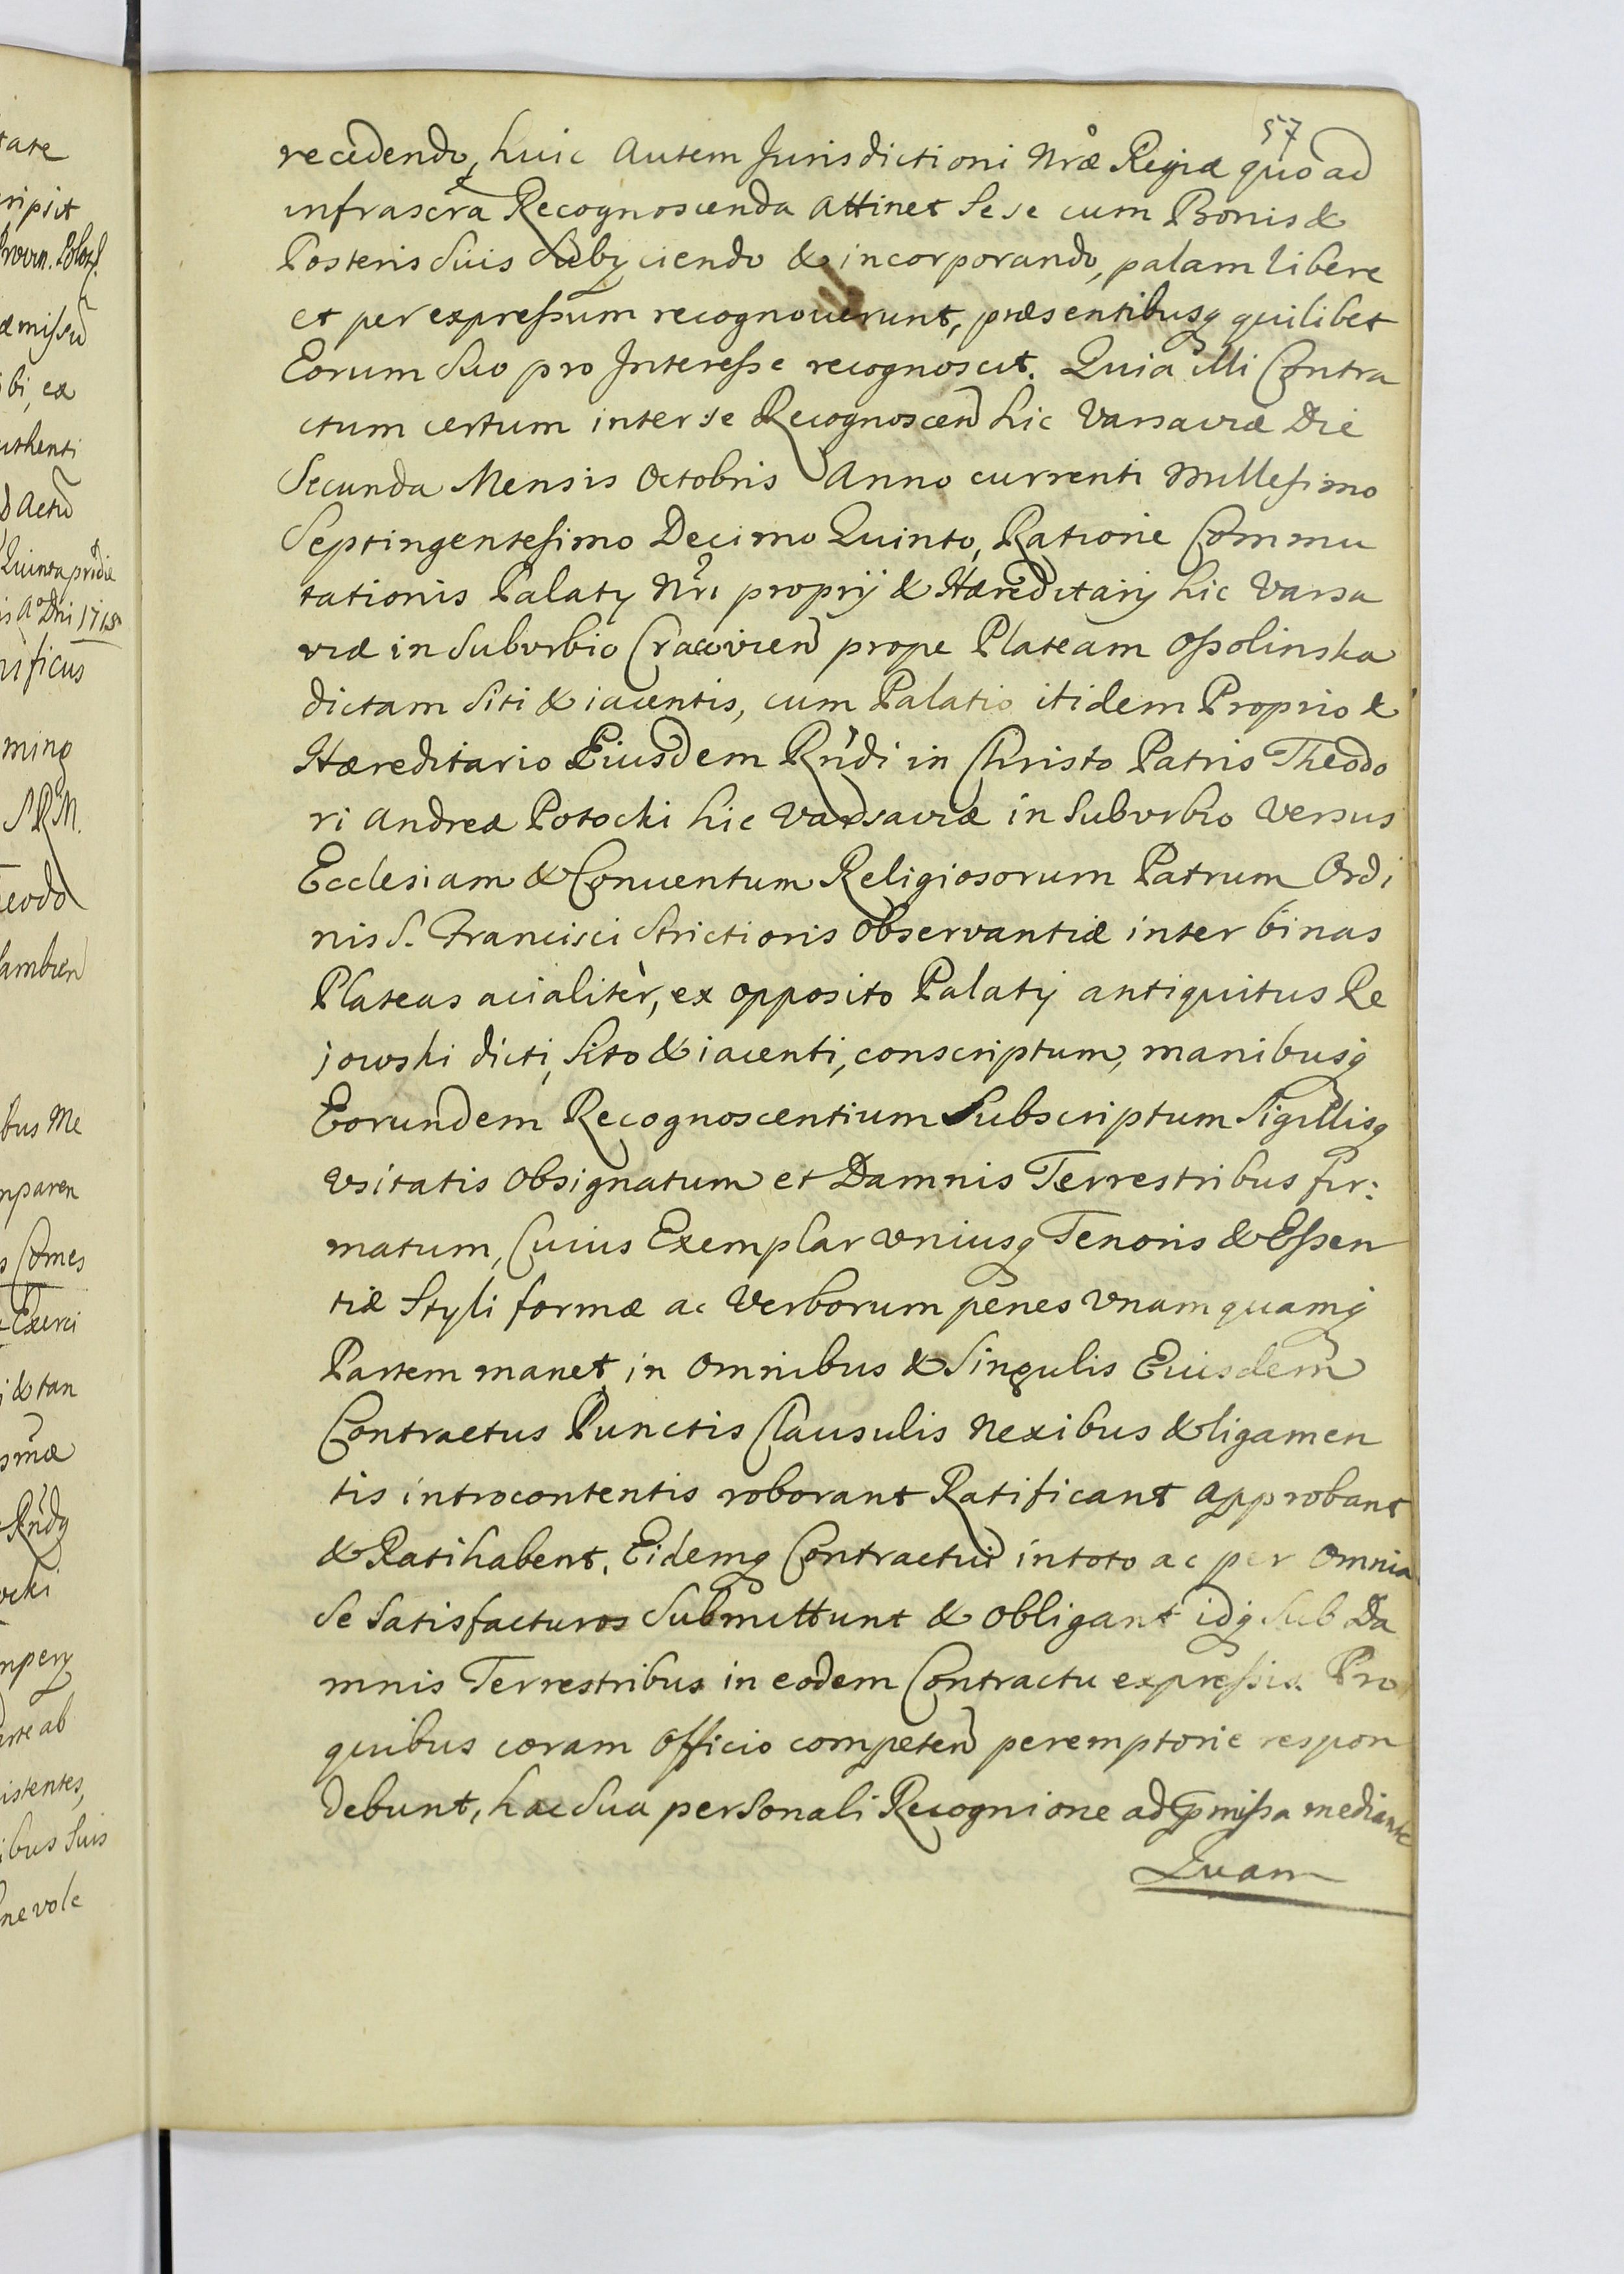 57
recedendo, huic autem Jurisdictioni Nræ Regiæ quo ad
infrascra Recognoscenda attinet sese cum Bonis &
Posteris Suis Subyciendo & incorporando, palam libere
et per expressum recognouerunt, præsentibusq quilibet
Eorum Suo pro Interesse recognoscit. Quia illi Contra
ctum certum inter se Recognoscen hic Varsaviæ Die
Secunda Mensis Octobris Anno currenti Millesimo
Septingentesimo Decimo Quinto, Ratione Commu
tationis Palaty Nri proprij & Hæreditarij hic Varsa
viæ in Suburbio Cracovien prope Plateam Ossolinska
dictam Siti & iacentis, cum Palatio itidem Proprio &
Hæreditario Eiusdem Rndi in Christo Patris Theodo
ri Andreæ Potocki hic Varsaviæ in Suburbio versus
Ecclesiam & Conuentum Religiosorum Patrum Ordi
nis S. Francisci Strictioris Observantiæ inter binas
Plateas acialiter, ex opposito Palatij antiquitus Re
jowski dicti, Sito & iacenti, conscriptum, manibusq
Eorundem Recognoscentium Subscriptum Sigillisq
Vsitatis Obsignatum et Damnis Terrestribus fir:
matum, Cuius Exemplar vniusq Tenoris & Essen
tiæ Styli formæ ac Verborum penes vnamquamq
Partem manet, in Omnibus & Singulis Eiusdem
Contractus Punctis Clausulis Nexibus & ligamen
tis introcontentis roborant Ratificant Approbant
& Ratihabent. Eidemq Contractui in toto ac per Omnia
Se Satisfacturos Submittunt & Obligant idq Sub Da
mnis Terrestribus in eodem Contractu expressis. Pro
quibus coram Officio competen peremptorie respon
debunt, hac Sua personali Recognione ad pmissa mediante
Quam